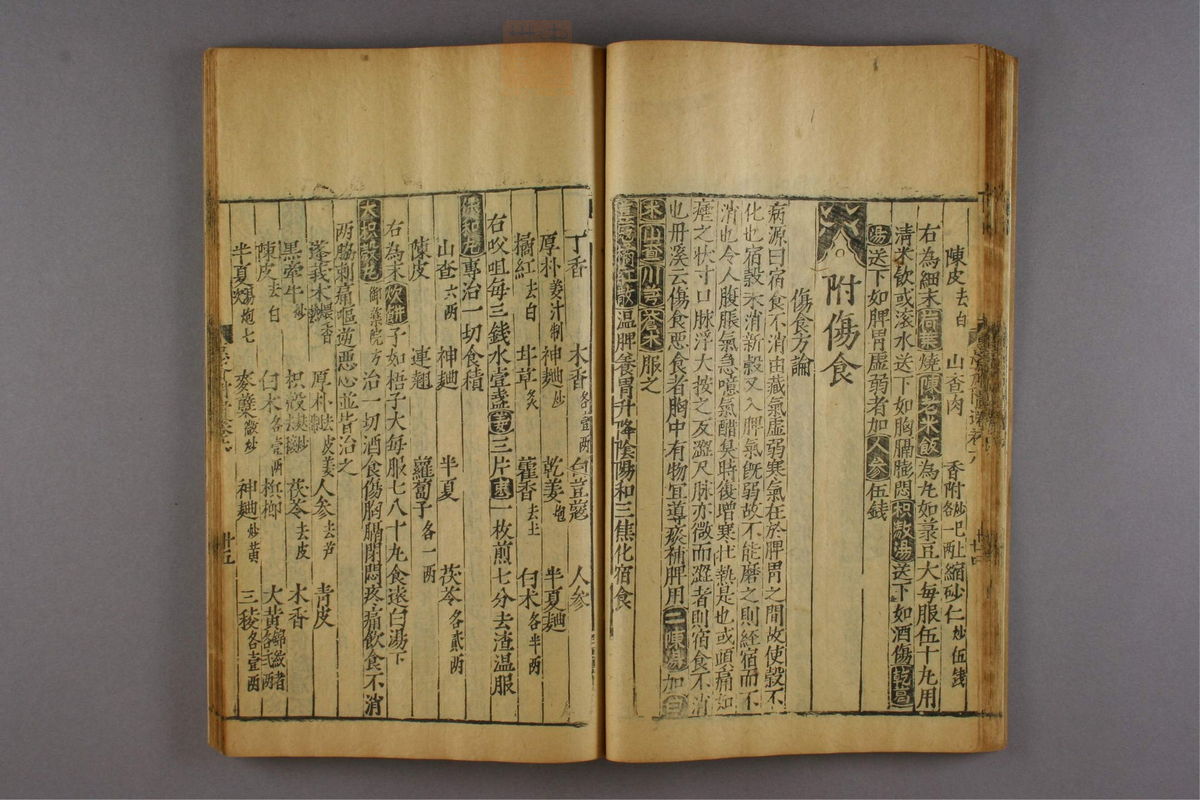 陳皮去白 山查肉 香附炒各一兩 已上縮砂仁炒伍錢
右為細末荷葉燒陳倉米飯為丸如菉豆大每服伍十丸用
清米飲或滚水送下如胸膈膨悶枳殼湯送下如酒傷乾葛
湯送下如脾胃虛弱者加人參伍錢
附傷食
傷食方論
病源曰宿食不消由藏氣虛弱寒氣在於脾胃之間故使穀不
化也宿穀未消新穀又入脾氣既弱故不能磨之則經宿而不
消也令人腹脹氣急噫氣醋臭時復增寒壯熱是也或頭痛如
瘧之状寸口脉浮大按之反澀尺脉亦微而澀者則宿食不消
也丹溪云傷食惡食者胸中有物宜導痰補脾用二陳湯加白
术山查川芎蒼术服之
橘紅散温脾養胃升降陰陽和三焦化宿食
丁香 木香各壹兩 白豆蔻 人參
厚朴姜汁制 神麯炒 乾姜炮 半夏麯
橘紅去白 甘草炙 藿香去土 白术各半兩
右㕮咀每三錢水壹盞姜三片棗一枚煎七分去渣温服
保和丸專治一切食積
山查六兩 神麯 半夏 茯苓各貳兩
陳皮 連翹 蘿蔔子各一兩
右為末炊餅子如梧子大每服七八十丸食遠白湯下
大枳殼丸御藥院方治一切酒食傷胸膈閉悶疼痛飲食不消
兩脇刺痛嘔逆惡心並皆治之
蓬莪朮煨香 厚朴去皮姜製 人參去芦 青皮
黒牽牛炒 枳殼麩炒 茯苓去皮 木香
陳皮去白 白术各壹兩 檳榔 大黃錦紋者各弍兩
半夏湯炮七次 麥蘖微炒 神麯炒黄 三稜各壹兩
廿五